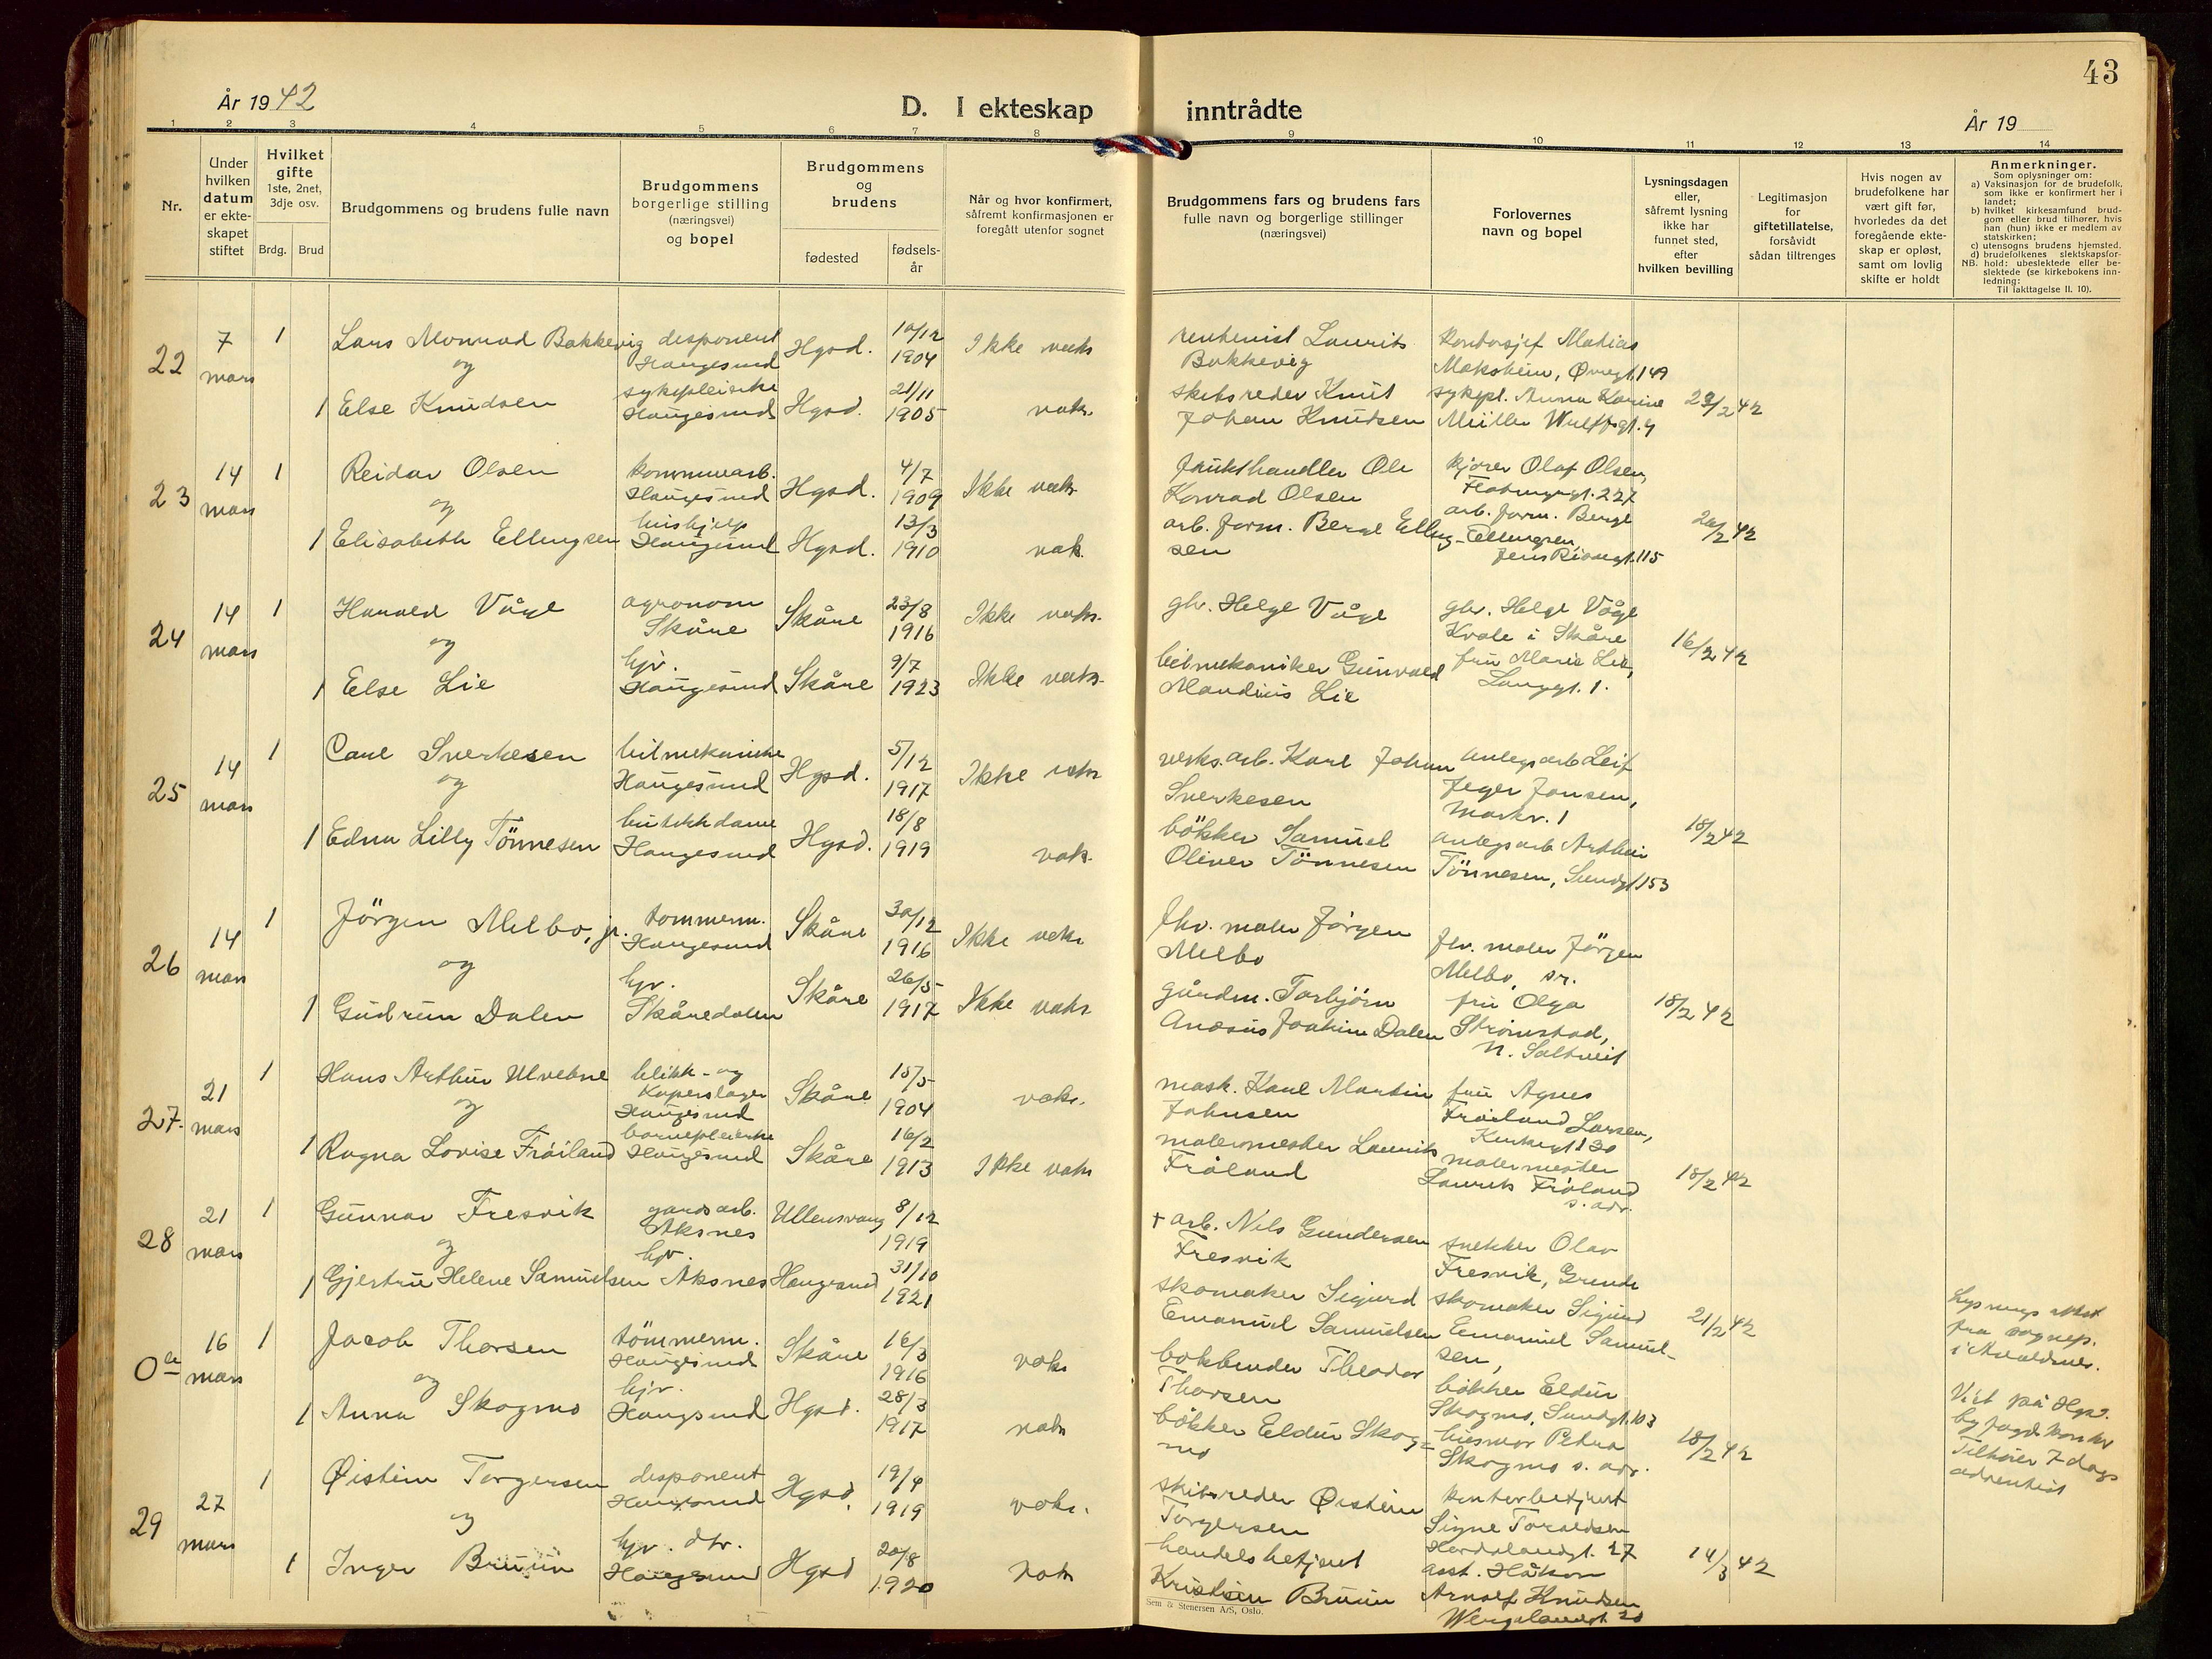 43
År 1942
D. I ekteskap inntrådte
År 19
1 2 3 4 5 6 7 8 9 10 11 12 13 14
Nr.
Under hvilken datum er ekte-skapet stiftet
Hvilket gifte 1ste, 2net, 3dje osv.
Brdg. Brud
Brudgommens og brudens fulle navn
Brudgommens borgerlige stilling (næringsvei) og bopel
Brudgommens og brudens
fødested
fødsels-år
Når og hvor konfirmert, såfremt konfirmasjonen er foregått utenfor sognet
Brudgommens fars og brudens fars fulle navn og borgerlige stillinger (næringsvei)
Forlovernes navn og bopel
Lysningsdagen eller, såfremt lysning ikke har funnet sted, efter hvilken bevilling
Legitimasjon for giftetillatelse, forsåvidt sådan tiltrenges
Hvis nogen av brudefolkene har vært gift før, hvorledes da det foregående ekte-skap er opløst, samt om lovlig skifte er holdt
Anmerkninger.
Som oplysninger om:
a) Vaksinasjon for de brudefolk, som ikke er konfirmert her i landet;
b) hvilket kirkesamfund brud-gom eller brud tilhører, hvis han (hun) ikke er medlem av statskirken;
c) utensogns brudens hjemsted.
d) brudefolkenes slektskapsfor-hold: ubeslektede eller be-slektede (se kirkebokens inn-ledning:
NB.
Til iakttagelse II. 10).
22 7 mars 1 Lars Monrad Bakkevig disponent Haugesund Hgsd. 10/12 1904 Ikke vaks rentenist Laurits Bakkevig kontorsjef Mathias Maksheim, Øvregt. 149
og
1 Else Knudsen sykepleierske Haugesund Hgsd. 21/11 1905 vaks. skibsreder Knut Johan Knudsen sykepl. Anna Karine Müller Wulffsgt. 4 29/2 42
23 14 mars 1 Reidar Olsen kommunearb. Haugesund Hgsd. 4/7 1909 Ikke vaks frukthandler Ole Konrad Olsen kjører Olaf Olsen, 227
og
1 Elisabeth Ellingsen hushjelp Haugesund Hgsd. 13/3 1910 vak. arb. form. Berge Elling-sen arb. form. Berge Ellingsen, 115 20/2 42
24 14 mars 1 Harald Våge agronom Skåre Skåre 23/8 1916 Ikke vaks. gbr. Helge Våge gbr. Helge Våge Kvale i Skåre
og
1 Else Lie hjv. Haugesund Skåre 9/7 1923 Ikke vaks. bilmekaniker Gunvald Mandius Lie fru Marie Lie, Langgt. 1. 16/2 42
25 14 mars 1 Carl Sverkesen bilmekaniker Haugesund Hgsd. 5/12 1917 Ikke vaks verks. arb. Karl Johan Sverkesen anlegsarb Leif Jeger Jansen, Markv. 1
og
1 Edna Lilly Tönnesen butikkdame Haugesund Hgsd. 18/8 1919 vak. bökker Samuel Oliver Tönnesen anlegsarb Arthur Tönnesen, Sundgt 153 18/2 42
26 14 mars 1 Jörgen Melbo, jr. tömmerm. Haugesund Skåre 30/12 1916 Ikke vaks fhv. maler Jörgen Melbo fhv. maler Jörgen Melbo, sr.
og
1 Gudrun Dalen hjv. Skåredalen Skåre 26/5 1917 Ikke vaks gårdm. Torbjörn Joakim Dalen fru Olga Strömstad, N. Saltveit 18/2 42
27 21 mars 1 Hans Arthur Ulvebne blikk- og Koperslager Haugesund Skåre 15/5 1904 vaks. mask. Karl Martin Johnsen fru Agnes Fröiland Larsen, Kirkegt 130
og
1 Ragna Lovise Fröiland barnepleierske Haugesund Skåre 16/2 1913 Ikke vaks malermester Laurits Fröland malermester Laurits Fröland s. adr. 18/2 42
28 21 mars 1 Gunnar Fresvik gardsarb. Aksnes Ullensvang 8/12 1919 + arb. Nils Gundersen Fresvik snekker Olav Fresvik, Grende
og
1 Gjertrü Helene Samuelsen hjv. Aksnes Haugesund 31/10 1921 skomaker Sigurd Emanuel Samuelsen skomaker Sigurd Emanuel Samuel-sen, 21/2 42 Lysnings attest fra sognep. i Avaldsnes.
0a 16 mars 1 Jacob Thorsen tömmerm. Haugesund Skåre 16/3 1916 vaks bokbinder Theodor Thorsen bökker Eldur Skogmo, Sundgt. 103
og
1 Anna Skogmo hjv. Haugsund Hgsd. 28/3 1917 vaks bökker Eldur Skog-mo husmor Petra Skogmo s. adr. 18/2 42 Viet på Hgsd. byfogdkontor Tilhörer 7 dags adventist
29 27 mars 1 Øistein Torgersen disponent Haugesund Hgsd. 19/4 1919 vaks. skibsreder Øistein Torgersen kontorbetjent Signe Toraldsen Hordalandgt. 27
og
1 Inger Bruun hjv. dtr. Haugesund Hgsd 20/8 1920 vaks handelsbetjent Kristian Bruun asst. Håkon Arnolf Knudsen Wergelandsgt 20 14/3 42
Sem & Stenersen A/S, Oslo.